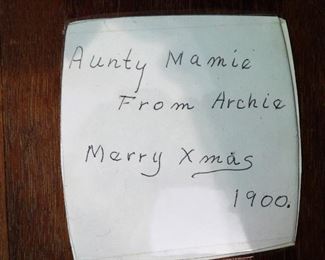 Aunty Mamie
From Archie
Merry Xmas
1900.